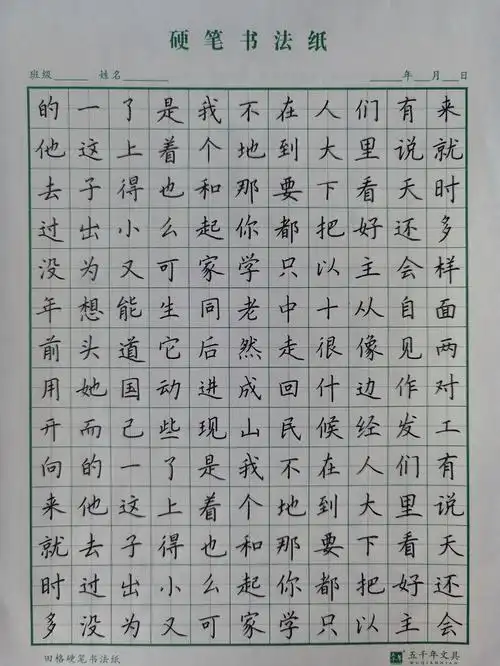 硬笔书法纸
班级 姓名 年 月 日
的一了是我不在人们有来
他这上着个地到大里说就
去子得也和那要下看天时
过出小么起你都把好还多
没为又可家学只以主会样
年想能生同老中十从自面
前头道它后然走很像见两
用她国动进成回什边作对
开而己些现山民候经发工
向的一了是我不在人们有
来他这上着个地到大里说
就去子得也和那要下看天
时过出小么起你都把好还
多没为又可家学只以主会
田格硬笔书法纸 五千年文具
WUQIANNIAN